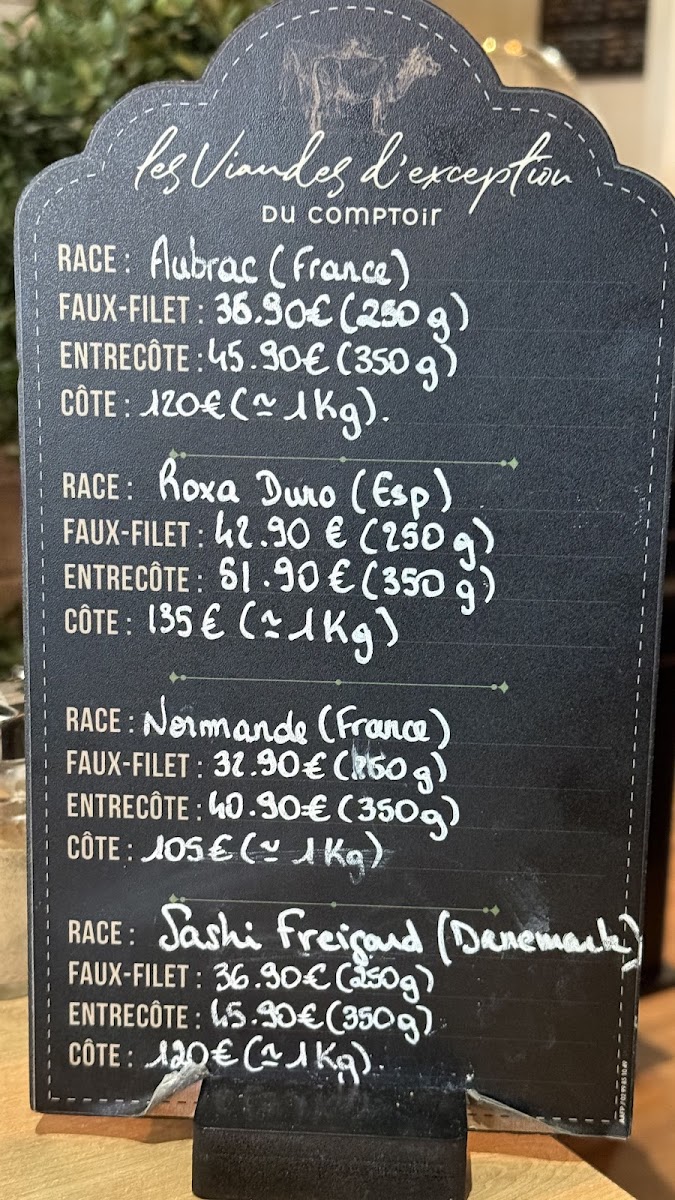 les Viandes d'exception
DU COMPTOIR
RACE : Aubrac (France)
FAUX-FILET : 36.90€ (250 g)
ENTRECÔTE : 45.90€ (350 g)
CÔTE : 120€ (≃ 1 Kg).
RACE : Roxa Duro (Esp)
FAUX-FILET : 42.90 € (250 g)
ENTRECÔTE : 51.90 € (350 g)
CÔTE : 135 € (≃ 1 Kg)
RACE : Normande (France)
FAUX-FILET : 32.90€ (250 g)
ENTRECÔTE : 40.90€ (350g)
CÔTE : 105€ (≃ 1 Kg)
RACE : Sashi Freigaud (Danemark)
FAUX-FILET : 36.90€ (250g)
ENTRECÔTE : 45.90€ (350g)
CÔTE : 120€ (≃ 1 Kg).